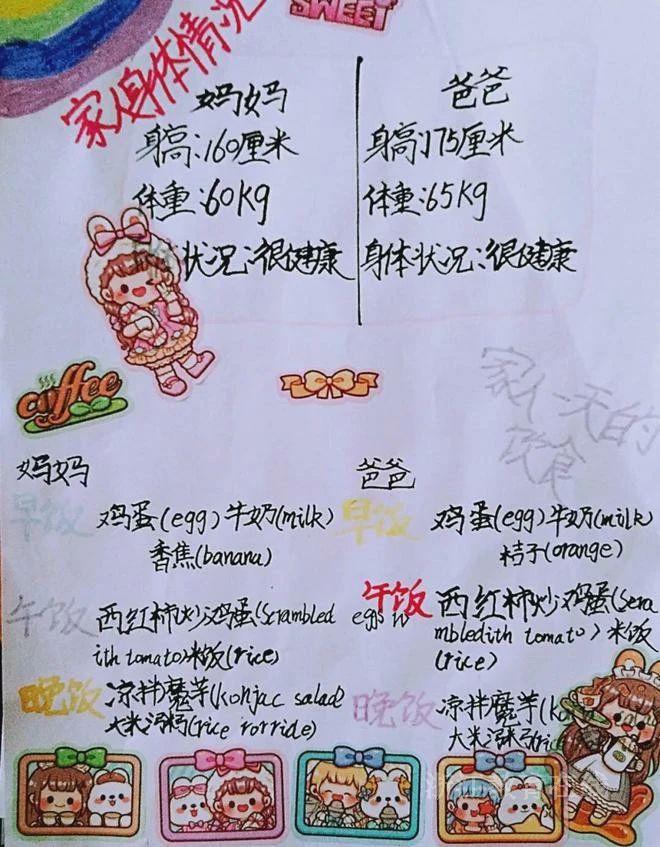 SWEET
家人身体情况
妈妈
身高:160厘米
体重:60kg
状况:很健康
爸爸
身高:175厘米
体重:65kg
身体状况:很健康
coffee
家人一天的
饮食
妈妈
早饭 鸡蛋(egg)牛奶(milk)
香焦(banana)
午饭 西红柿炒鸡蛋(Scrambled eggs w
ith tomato)米饭(rice)
晚饭 凉拌魔芋(konjac salad)
大米汤粥(rice rorride)
爸爸
早饭 鸡蛋(egg)牛奶(milk)
桔子(orange)
午饭 西红柿炒鸡蛋(Scra
mbledith tomato)米饭
(rice)
晚饭 凉拌魔芋(ko
大米汤粥(rice